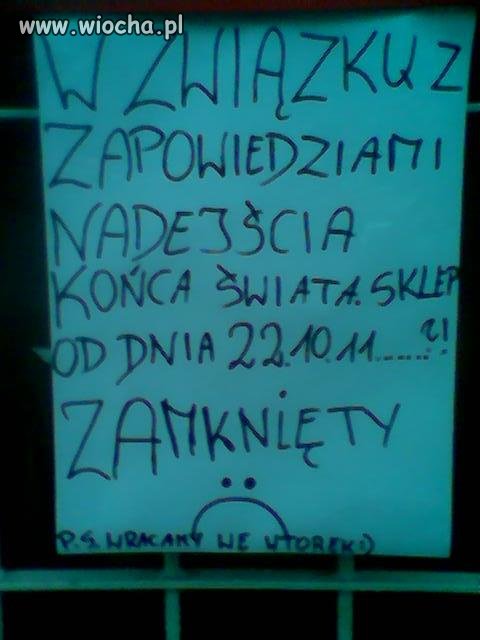 www.wiocha.pl
W ZWIĄZKU Z
ZAPOWIEDZIAMI
NADEJŚCIA
KOŃCA ŚWIATA SKLEP
OD DNIA 22.10.11.......?!
ZAMKNIĘTY
P.S. WRACAMY WE WTOREK:)